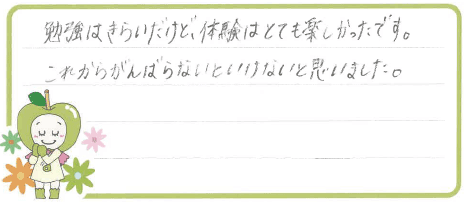 勉強はきらいだけど、体験はとても楽しかったです。
これからがんばらないといけないと思いました。